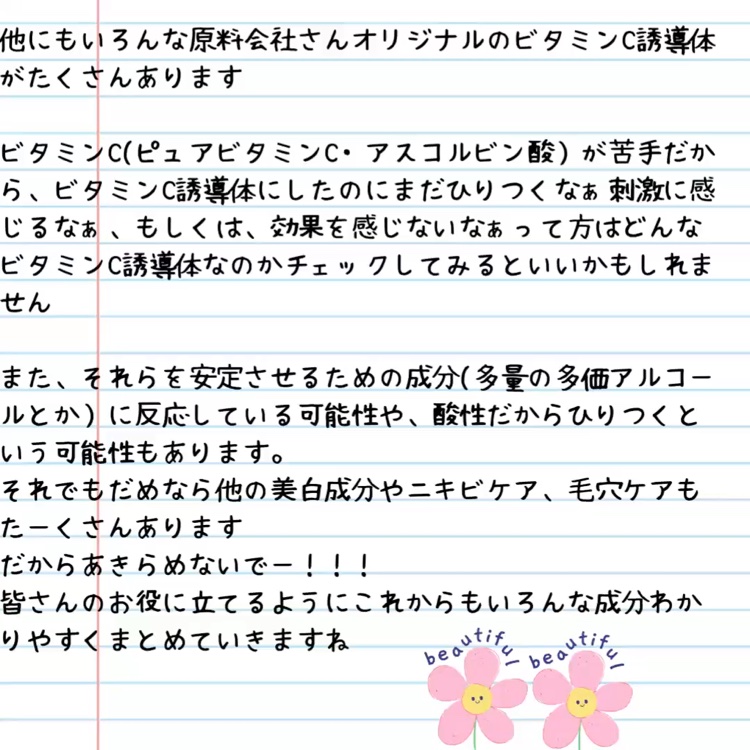 他にもいろんな原料会社さんオリジナルのビタミンC誘導体
がたくさんあります
ビタミンC(ピュアビタミンC・アスコルビン酸)が苦手だか
ら、ビタミンC誘導体にしたのにまだひりつくなぁ刺激に感
じるなぁ、もしくは、効果を感じないなぁって方はどんな
ビタミンC誘導体なのかチェックしてみるといいかもしれま
せん
また、それらを安定させるための成分(多量の多価アルコー
ルとか)に反応している可能性や、酸性だからひりつくと
いう可能性もあります。
それでもだめなら他の美白成分やニキビケア、毛穴ケアも
たーくさんあります
だからあきらめないでー！！！
皆さんのお役に立てるようにこれからもいろんな成分わか
りやすくまとめていきますね
beautiful beautiful